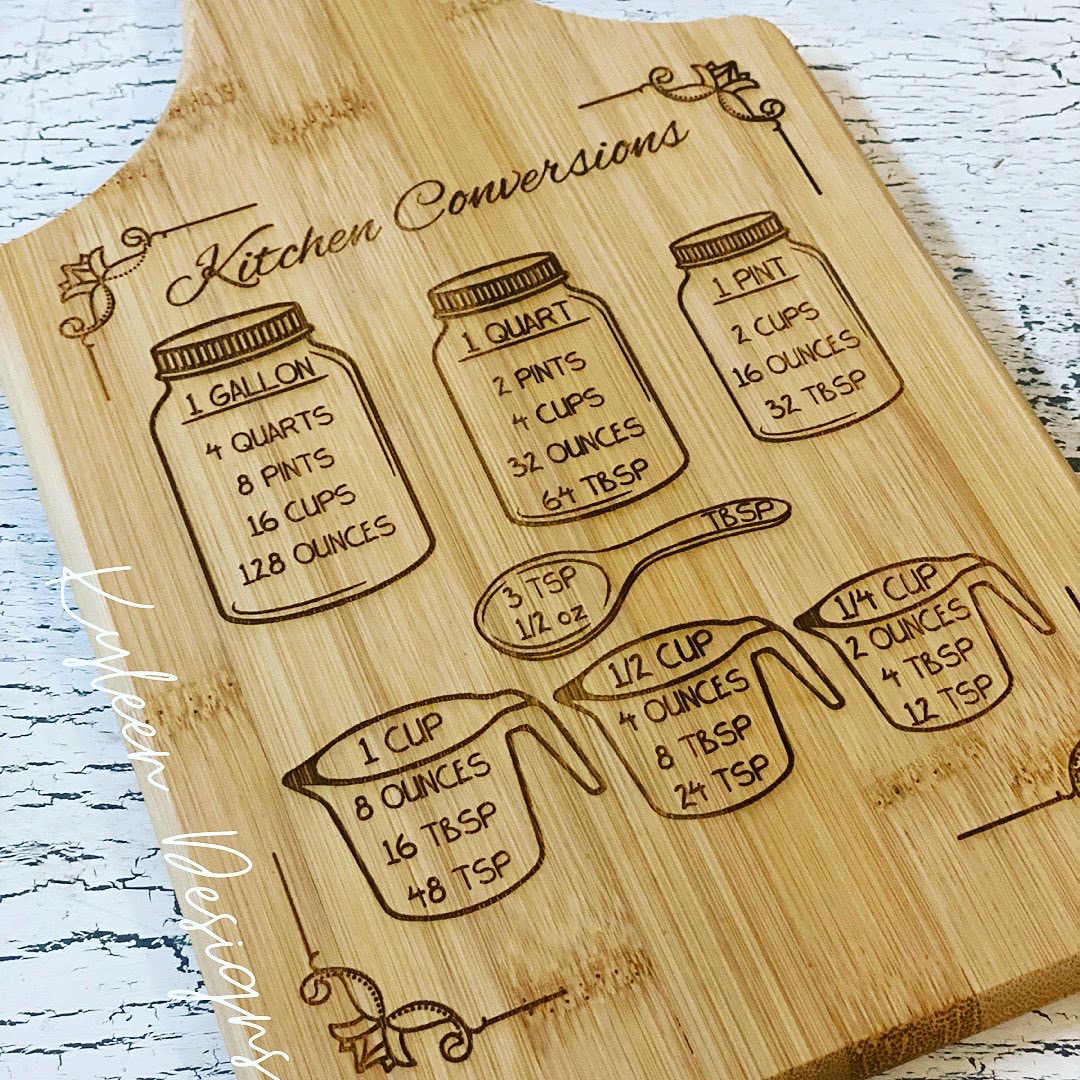 Kitchen Conversions
1 GALLON
4 QUARTS
8 PINTS
16 CUPS
128 OUNCES
1 QUART
2 PINTS
4 CUPS
32 OUNCES
64 TBSP
1 PINT
2 CUPS
16 OUNCES
32 TBSP
TBSP
3 TSP
1/2 oz
1 CUP
8 OUNCES
16 TBSP
48 TSP
1/2 CUP
4 OUNCES
8 TBSP
24 TSP
1/4 CUP
2 OUNCES
4 TBSP
12 TSP
Designs